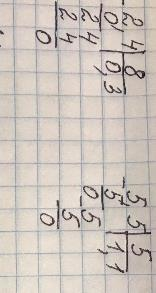 -2 4|8
0|0,3
24
24
0
-5 5|5
5|1,1
0 5
5
0